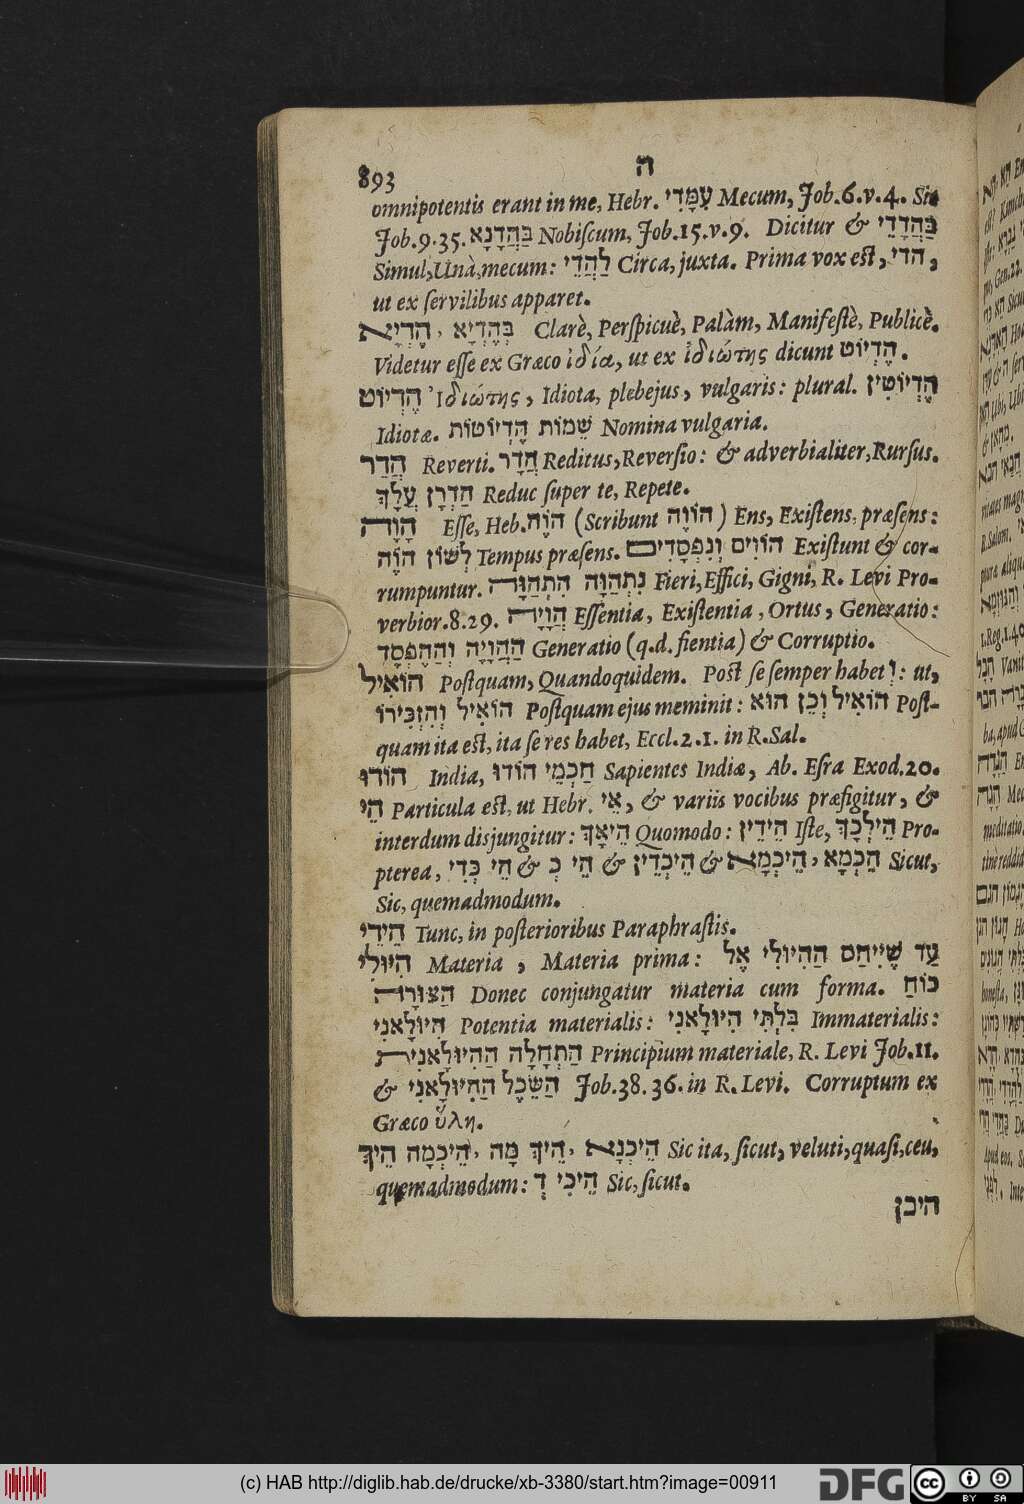 893
ה
omnipotentis erant in me, Hebr. עִמָּדִי Mecum, Job.6.v.4. Sic
Job.9.35. בַּהֲדָנָא Nobiſcum, Job.15.v.9. Dicitur & בַּהֲדָדֵי
Simul, Unà, mecum: לַהֲדֵי Circa, juxta. Prima vox eſt, הדי,
ut ex ſervilibus apparet.
הֶדְיָא, בְּהֶדְיָא Clarè, Perſpicuè, Palàm, Manifeſtè, Publicè.
Videtur eſſe ex Græco ἰδία, ut ex ἰδιώτης dicunt הֶדְיוֹט.
הֶדְיוֹט Ἰδιώτης, Idiota, plebejus, vulgaris: plural. הֶדְיוֹטִין
Idiotæ. שֵׁמוֹת הֶדְיוֹטוֹת Nomina vulgaria.
הֲדַר Reverti. הֲדָר Reditus, Reverſio: & adverbialiter, Rurſus.
הַדְרָן עֲלָךְ Reduc ſuper te, Repete.
הָוָה Eſſe, Heb. הוֶֹה (Scribunt הוֹוֶה) Ens, Exiſtens, præſens:
לְשׁוֹן הוֶֹה Tempus præſens. הוֹוִים וְנִפְסָדִים Exiſtunt & cor-
rumpuntur. נִתְהַוָּה הִתְהַוָּה Fieri, Effici, Gigni, R. Levi Pro-
verbior.8.29. הֲוָיָה Eſſentia, Exiſtentia, Ortus, Generatio:
הַהֲוָיָה וְהַהֶפְסָד Generatio (q.d. fientia) & Corruptio.
הוֹאִיל Poſtquam, Quandoquidem. Poſt ſe ſemper habet וְ: ut,
הוֹאִיל וְהִזְכִּירוֹ Poſtquam ejus meminit: הוֹאִיל וְכֵן הוּא Poſt-
quam ita eſt, ita ſe res habet, Eccl.2.1. in R. Sal.
הוֹדוּ India, חַכְמֵי הוֹדוּ Sapientes Indiæ, Ab. Eſra Exod.20.
הֵי Particula eſt, ut Hebr. אֵי, & variis vocibus præfigitur, &
interdum disjungitur: הֵיאָךְ Quomodo: הֵידֵין Iſte, הֵילְכָךְ Pro-
pterea, הֵכְמָא, הֵיכְמָא & הֵיכְדֵין & הֵי כְּ & הֵי כְּדִי Sicut,
Sic, quemadmodum.
הֵידֵי Tunc, in poſterioribus Paraphraſtis.
הִיּוּלִי Materia, Materia prima: עַד שֶׁיִּיחַס הַהִיּוּלִי אֶל
הַצּוּרָה Donec conjungatur materia cum forma. כּוֹחַ
הִיּוּלָאנִי Potentia materialis: בִּלְתִּי הִיּוּלָאנִי Immaterialis:
הַתְחָלָה הַהִיּוּלָאנִית Principium materiale, R. Levi Job.11.
& הַשֵּׂכֶל הַהִיּוּלָאנִי Job.38.36. in R. Levi. Corruptum ex
Græco ὕλη.
הֵיךְ, הֵיכְמָה, הֵיךְ מָה, הֵיכְנָא Sic ita, ſicut, veluti, quaſi, ceu,
quemadmodum: הֵיכִי דְ Sic, ſicut.
היכן
(c) HAB http://diglib.hab.de/drucke/xb-3380/start.htm?image=00911
DFG
cc BY SA